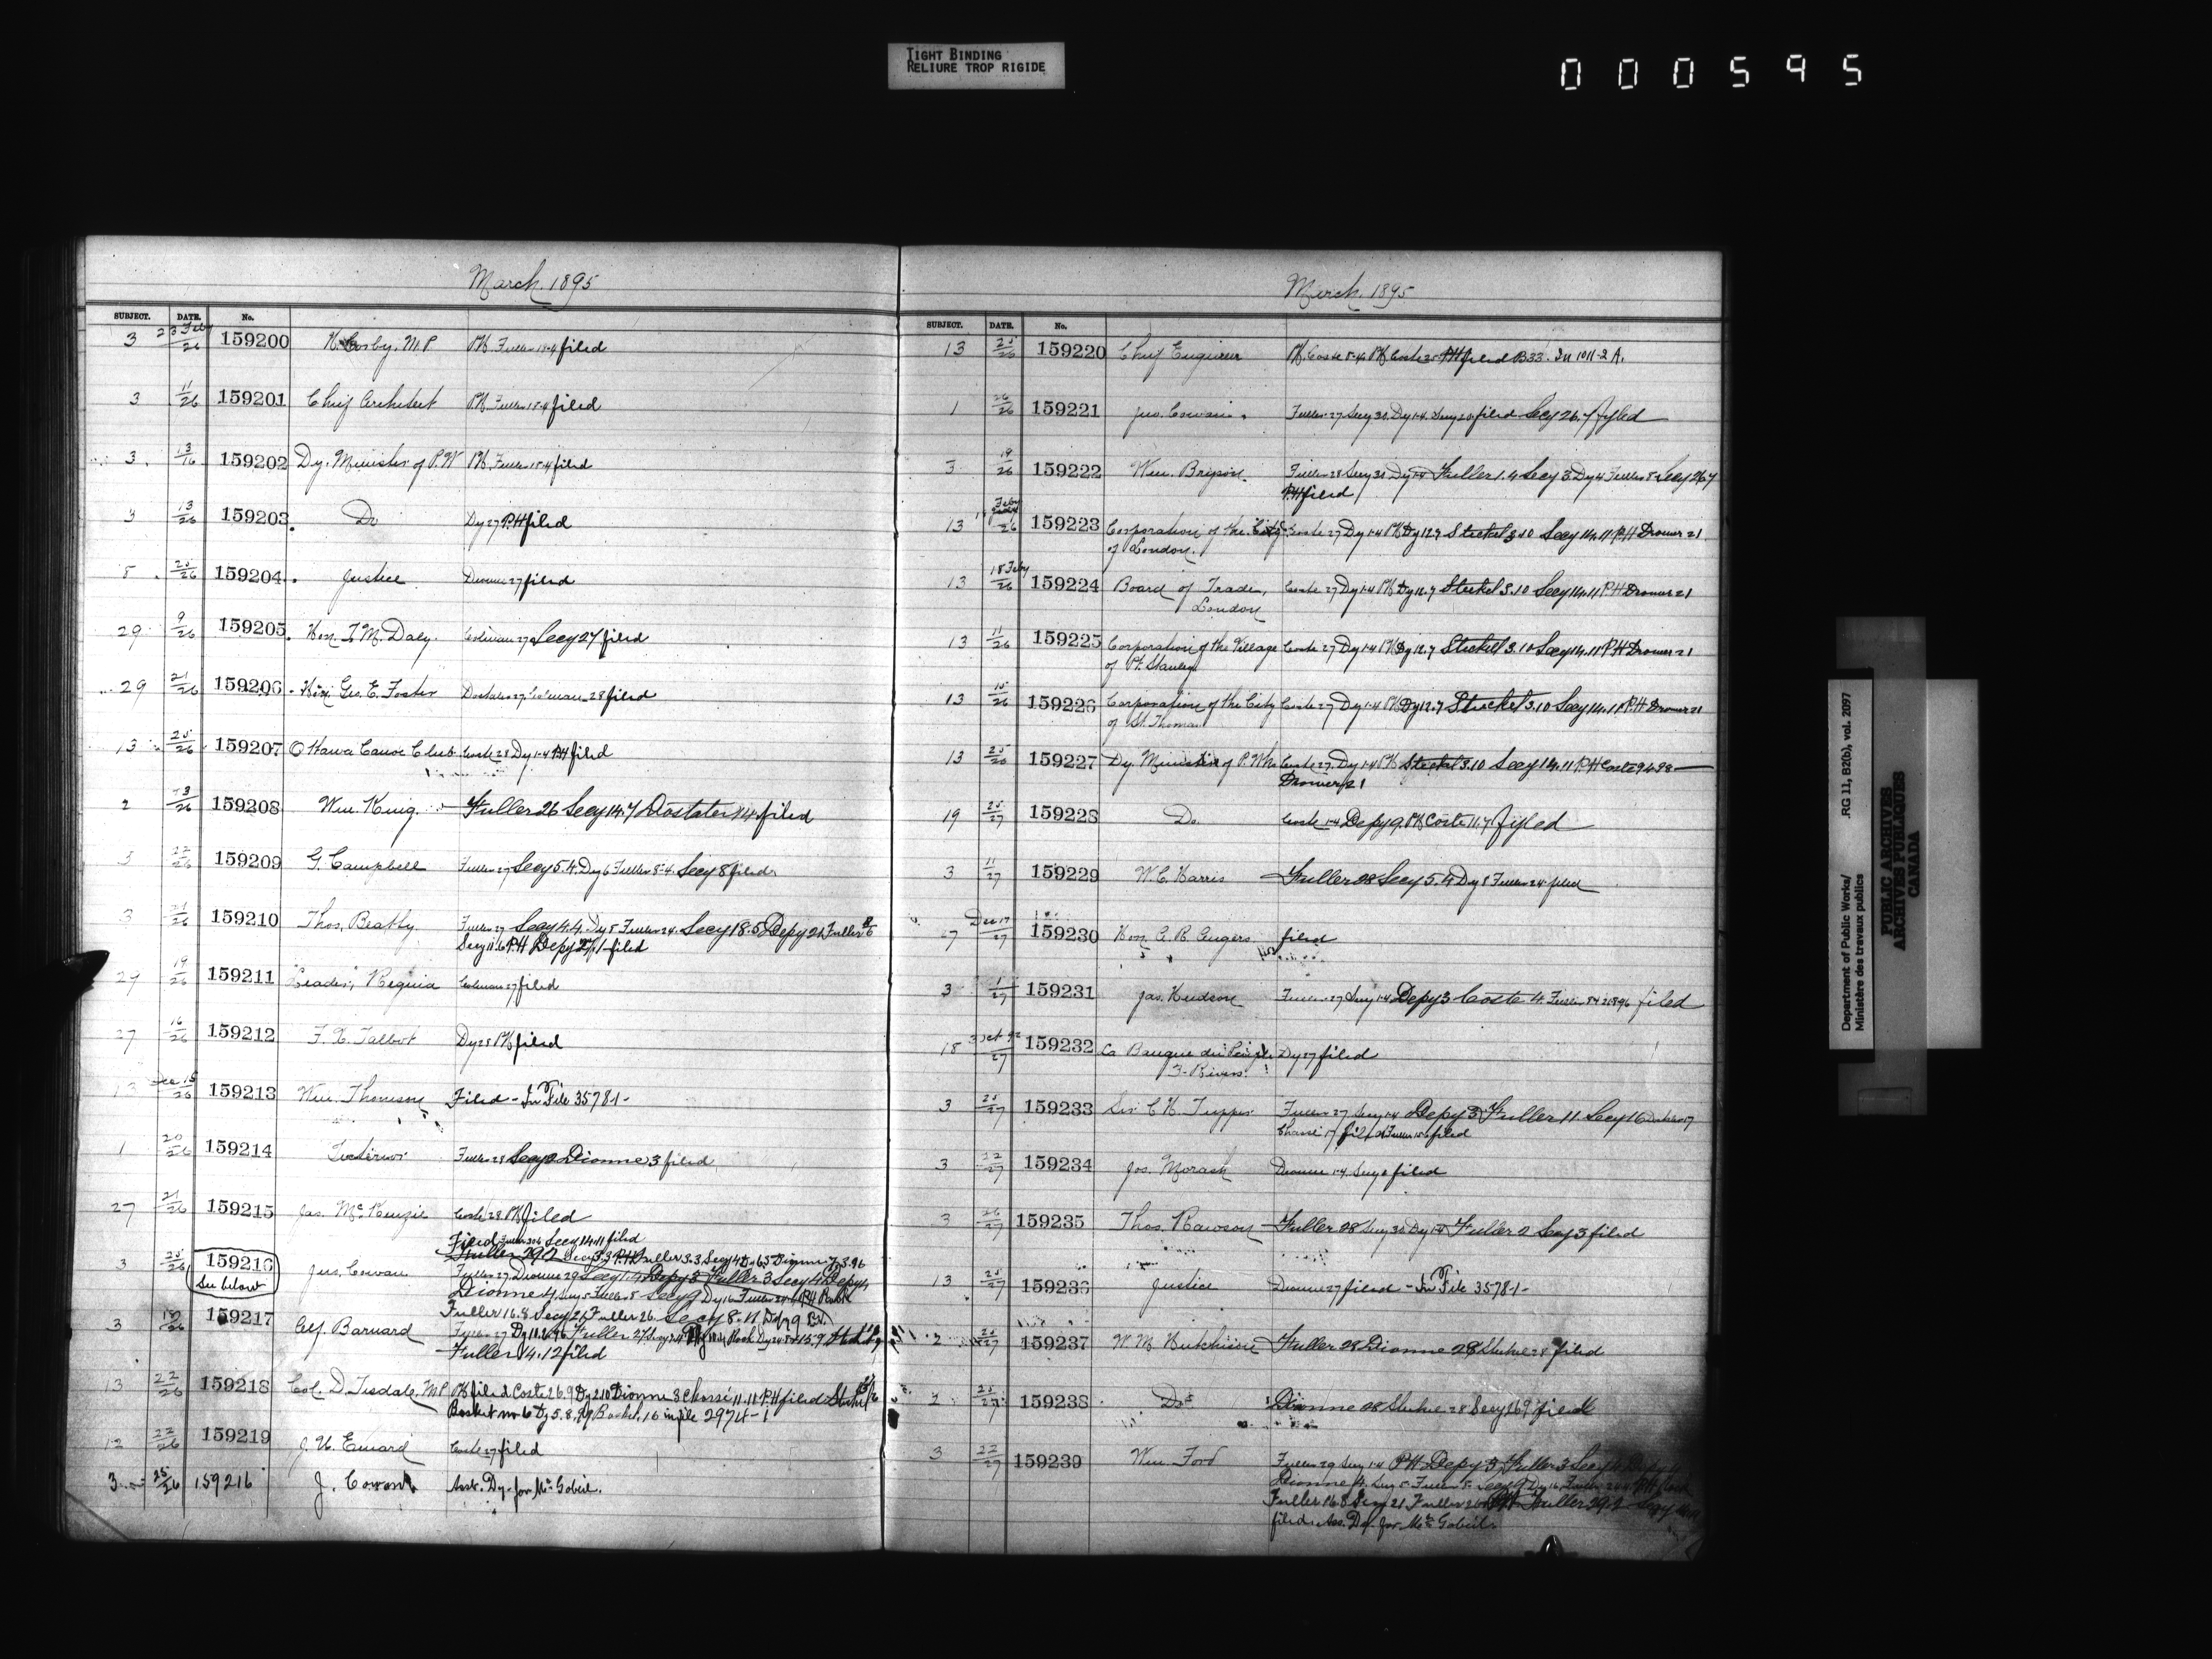 TIGHT BINDING
RELIURE TROP RIGIDE
000595
March. 1895
SUBJECT. DATE. No.
3 23 Feby/26 159200 H. Cosby. M.P PH. Fuller 18-4 filed
3 11/26 159201 Chief Architect PH. Fuller 18-4 filed
3. 13/16 159202 Dy. Minister of P.W PH. Fuller 18-4 filed
3 13/26 159203. Do Dy 27 P.H filed
8. 25/26 159204. Justice Dionne 27 filed
29 9/26 159205. Hon. T. M. Daly. Coleman 27 Secy 27 filed
29 21/26 159206. Hon Geo. E. Foster Dostater 27 Coleman 28 filed
13 25/26 159207 Ottawa Canoe Club Coste 28 Dy 1-4 PH filed
2 23/26 159208 Wm. King. Fuller 26 Secy 14.7 Dostater 14 filed
3 22/26 159209 G. Campbell Fuller 27 Secy 5.4. Dy 6 Fuller 8-4. Secy 8 filed
3 21/26 159210 Thos. Beatty Fuller 27 Secy 4.4. Dy 5 Fuller 24. Secy 18.5 Depy 21 Fuller
Secy 11.6 P.H Depy 27.1 filed
29 19/26 159211 "Leader", Regina Coleman 27 filed
27 16/26 159212 F. X. Talbot Dy 28 PH filed
13 Dec 15/26 159213 Wm. Thomson Filed - In File 3578-1-
1 20/26 159214 Fuller 28 Secy 2 Dionne 3 filed
27 21/26 159215 Jas. McKenzie Coste 28 PH filed
Filed Secy 14.11 filed
3 25/26 159216 Jas. Cowan Fuller 27. Dionne 29 Secy 1.4 Depy 3 Fuller 3 Secy 4 Depy 4
See below Dionne 4. Secy 5 Fuller 8 Secy 9 Dy 16 Fuller 24 PH
Fuller 16.8 Secy 21 Fuller 26. Secy
3 18/26 159217 Alf. Barnard
Fuller 14.12 filed
13 22/26 159218 Col. D. Tisdale, M.P PH filed Coste 26.9 Dy 2.10 Dionne 3 Chassé 11.11 P.H filed
Basket no 6 Dy 5.8.99 Basket 16 in file 2974-1
12 22/26 159219 J. U. Emard Coste 27 filed
3 25/26 159216 J. Cowan Asst. Dy. for Mr Gobeil.
March. 1895
SUBJECT. DATE. No.
13 25/26 159220 Chief Engineer PH. Coste 8-4. PH Coste 25 PH filed B33. In 1011-2 A.
1 26/26 159221 Jas. Cowan. Fuller 27 Secy 30. Dy 1-4. Secy 20 filed Secy 26.7 filed
3 19/26 159222 Wm. Bryson. Fuller 28 Secy 30 Dy 1-4 Fuller 1.4 Secy 3 Dy 4 Fuller 8 Secy 26.7
P.H filed
13 Feby/26 159223 Corporation of the City Coste 27 Dy 1-4 PH Dy 12.7 Steckel 3.10 Secy 14.11 P.H Drawer 21
of London.
13 18 Feby/26 159224 Board of Trade, Coste 27 Dy 1-4 PH Dy 12.7 Steckel 3.10 Secy 14.11 P.H Drawer 21
London
13 11/26 159225 Corporation of the Village Coste 27 Dy 1-4 PH Dy 12.7 Steckel 3.10 Secy 14.11 P.H Drawer 21
of Pt. Stanley
13 15/26 159226 Corporation of the City Coste 27 Dy 1-4 PH Dy 12.7 Steckel 3.10 Secy 14.11 P.H Drawer 21
of St. Thomas
13 25/26 159227 Dy Minister of P. Wks Coste 27. Dy 1-4 PH Steckel 3.10 Secy 14.11 P.H Coste 9.4.98
Drawer 21
19 25/27 159228 Do. Coste 1-4 Depy 9. PH Coste 11.7 filed
3 11/27 159229 W. C. Harris Fuller 28 Secy 5.4 Dy 8 Fuller 24 filed
27 Dec 17/27 159230 Hon. A. R. Angers filed
3 1/27 159231 Jas. Hudson Fuller 27 Secy 1-4 Depy 3 Coste 4. Fuller filed
18 3 Oct 92/27 159232 La Banque du Peuple Dy 27 filed
3-Rivers.
3 25/27 159233 Sir C. H. Tupper Fuller 27 Secy 1-4 Depy 3 Fuller 11 Secy 16
Chassé 17 filed Fuller filed
3 22/27 159234 Jos. Morash Dionne 1-4. Secy 2 filed
3 26/27 159235 Thos. Rawson Fuller 28 Secy 30 Dy 1-4 Fuller 2 Secy 3 filed
13 25/27 159236 Justice Dionne 27 filed - In File 3578-1-
2 25/27 159237 W. M. Hutchison Fuller 28 Dionne 28 28 filed
2 25/27 159238 Do Dionne 28 28 Secy 26.9 filed
3 22/27 159239 Wm. Ford Fuller 29 Secy 1-4 P.H Depy 3, Fuller 3 Secy 4
Dionne 4. Secy 5 Fuller 8 Secy 9 Dy 16, Fuller 24
Fuller 16.8 Secy 21 Fuller 26 PH Fuller 29.2 Secy
filed. Ass. Dy. for Mr Gobeil.
Department of Public Works/ RG 11, B2(b), vol. 2097
Ministère des travaux publics
PUBLIC ARCHIVES
ARCHIVES PUBLIQUES
CANADA